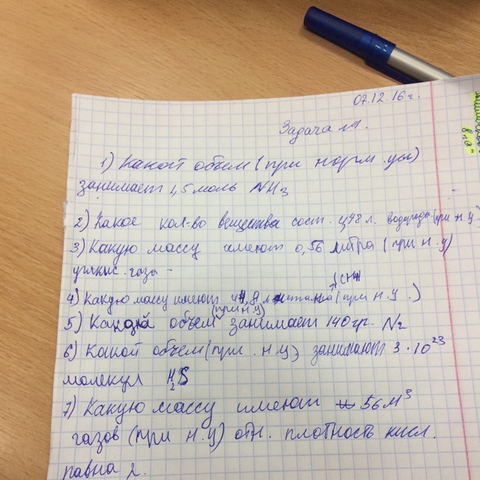 07.12.16 г.
Задача №1.
1) Какой объем (при норм. усл)
занимает 1,5 моль NH3
2) Какое кол-во вещества сост. 4,48 л. водорода (при н.у)
3) Какую массу имеют 0,56 литра (при н.у)
углкис. газа -
(CH4)
4) Какую массу имеют 44,8 л метана (при н.у.)
(при н.у)
5) Какой объем занимает 140 гр. N2
6) Какой объем (при н.у) занимают 3 · 10²³
молекул H2S
7) Какую массу имеют 56 м³
газов (при н.у) отн. плотность кисл.
равна 2.